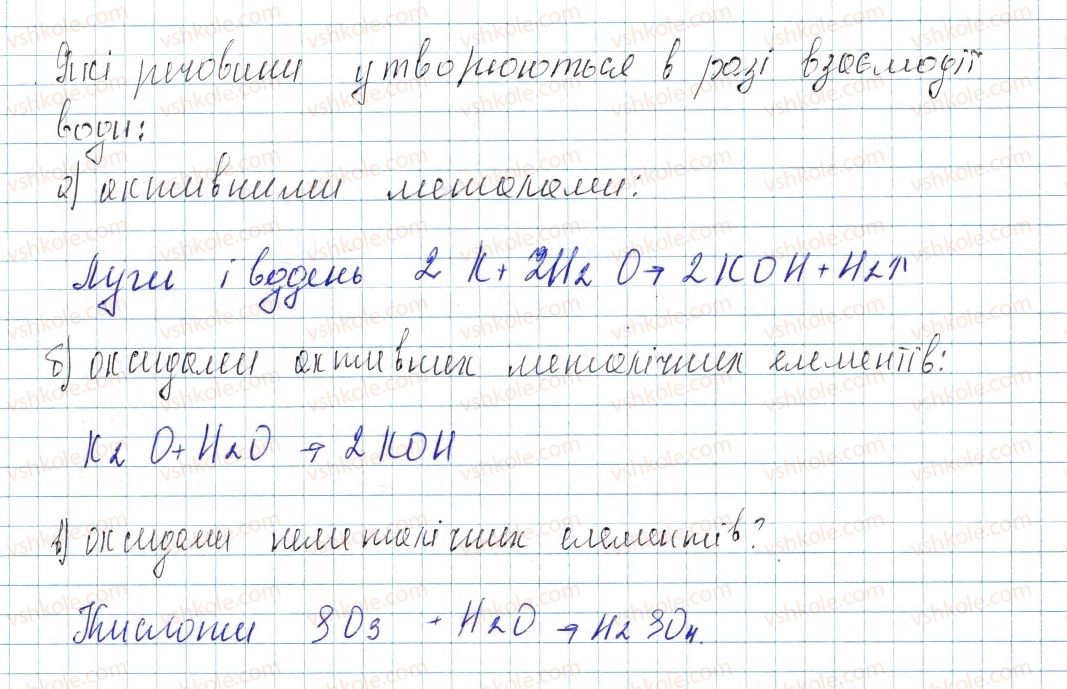 Які речовини утворюються в разі взаємодії
води:
а) активними металами:
Луги і водень 2 K + 2H2O → 2KOH + H2↑
б) оксидами активних металічних елементів:
K2O + H2O → 2KOH
в) оксидами неметалічних елементів?
Кислоти SO3 + H2O → H2SO4.